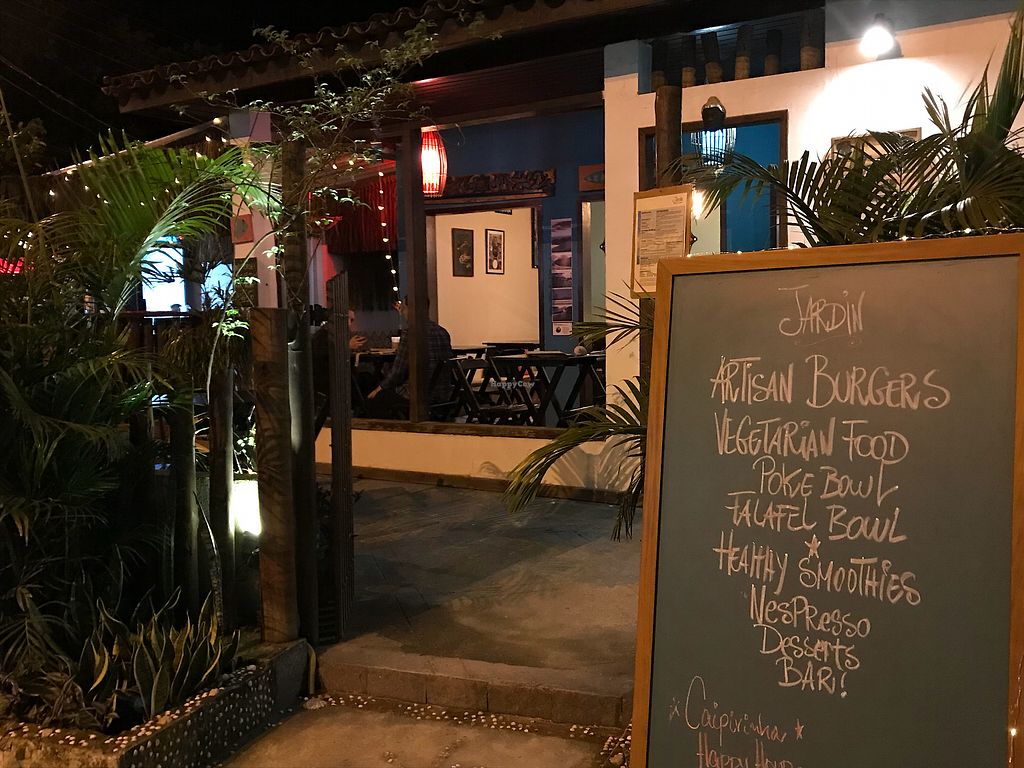 JARDIN
ARTISAN BURGERS
VEGETARIAN FOOD
POKE BOWL
FALAFEL BOWL
HEALTHY SMOOTHIES
NESPRESSO
DESSERTS
BAR!
Caipirinha
HAPPY HOUR
HappyCow